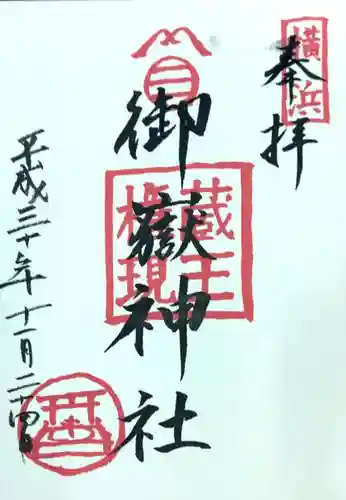 横浜
奉拝
三
御嶽神社
蔵王権現
平成三十年十一月二十四日